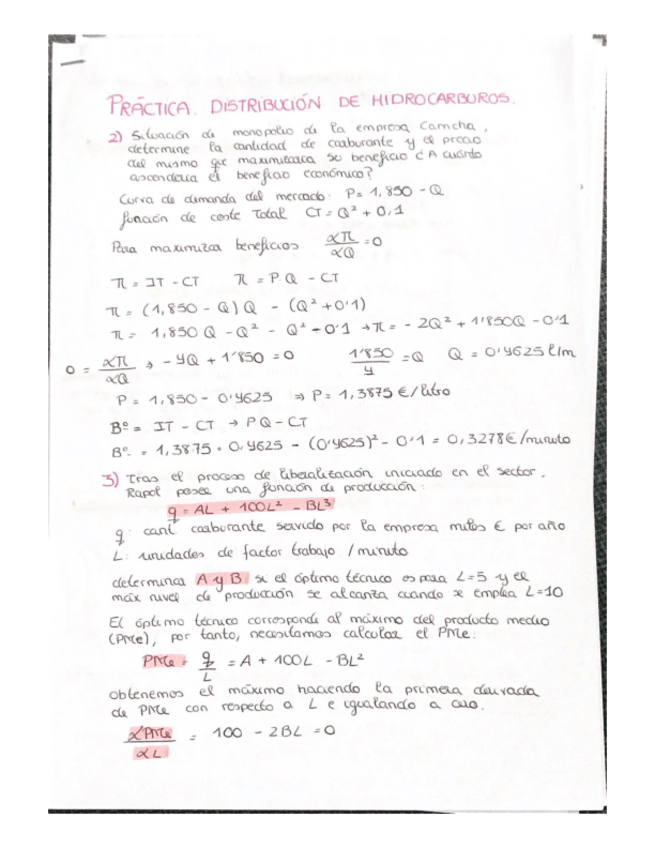 PRÁCTICA. DISTRIBUCIÓN DE HIDROCARBUROS.
2) Situación de monopolio de la empresa Camcha,
determine la cantidad de carburante y el precio
del mismo que maximizaría su beneficio ¿A cuánto
ascendería el beneficio económico?
Curva de demanda del mercado: P = 1,850 - Q
función de coste Total CT = Q² + 0,1
Para maximizar beneficios απ/αQ = 0
π = IT - CT π = P·Q - CT
π = (1,850 - Q) Q - (Q² + 0'1)
π = 1,850 Q - Q² - Q² - 0'1 → π = - 2Q² + 1'850Q - 0'1
0 = απ/αQ → - 4Q + 1'850 = 0 1'850/4 = Q Q = 0'4625 l/m
P = 1,850 - 0'4625 ⇒ P = 1,3875 €/litro
Bº = IT - CT → PQ - CT
Bº = 1,3875 · 0,4625 - (0'4625)² - 0'1 = 0,3278€/minuto
3) Tras el proceso de liberalización iniciado en el sector,
Rapol posee una función de producción:
q = AL + 100L² - BL³
q: cant. carburante servido por la empresa miles € por año
L: unidades de factor trabajo / minuto
determinar A y B si el óptimo técnico es para L=5 y el
máx nivel de producción se alcanza cuando se emplea L=10
El óptimo técnico corresponde al máximo del producto medio
(PMe), por tanto, necesitamos calcular el PMe:
PMe = q/L = A + 100L - BL²
obtenemos el máximo haciendo la primera derivada
de PMe con respecto a L e igualando a cero.
αPMe/αL = 100 - 2BL = 0